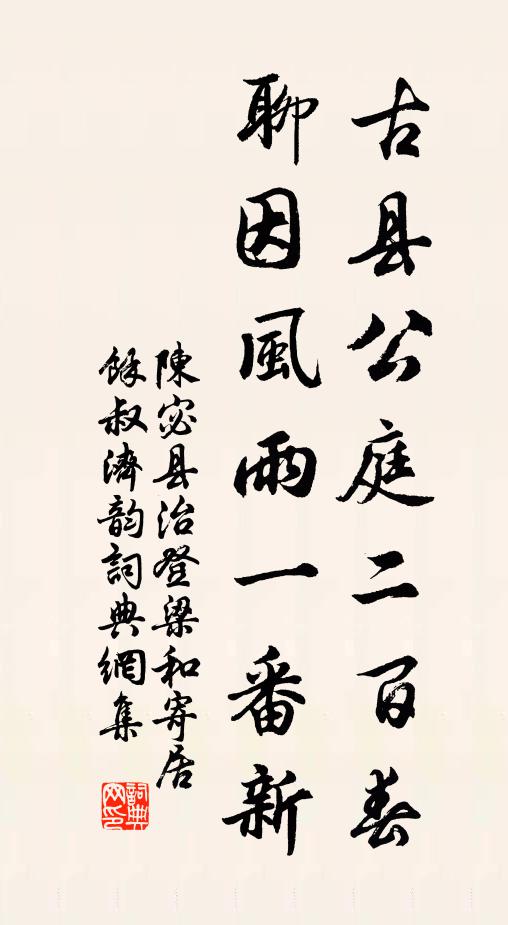 古县公庭二百春
聊因風雨一番新
陳宓县治登梁和寄居
餘叔濟韵詞典網集
詞典
网印